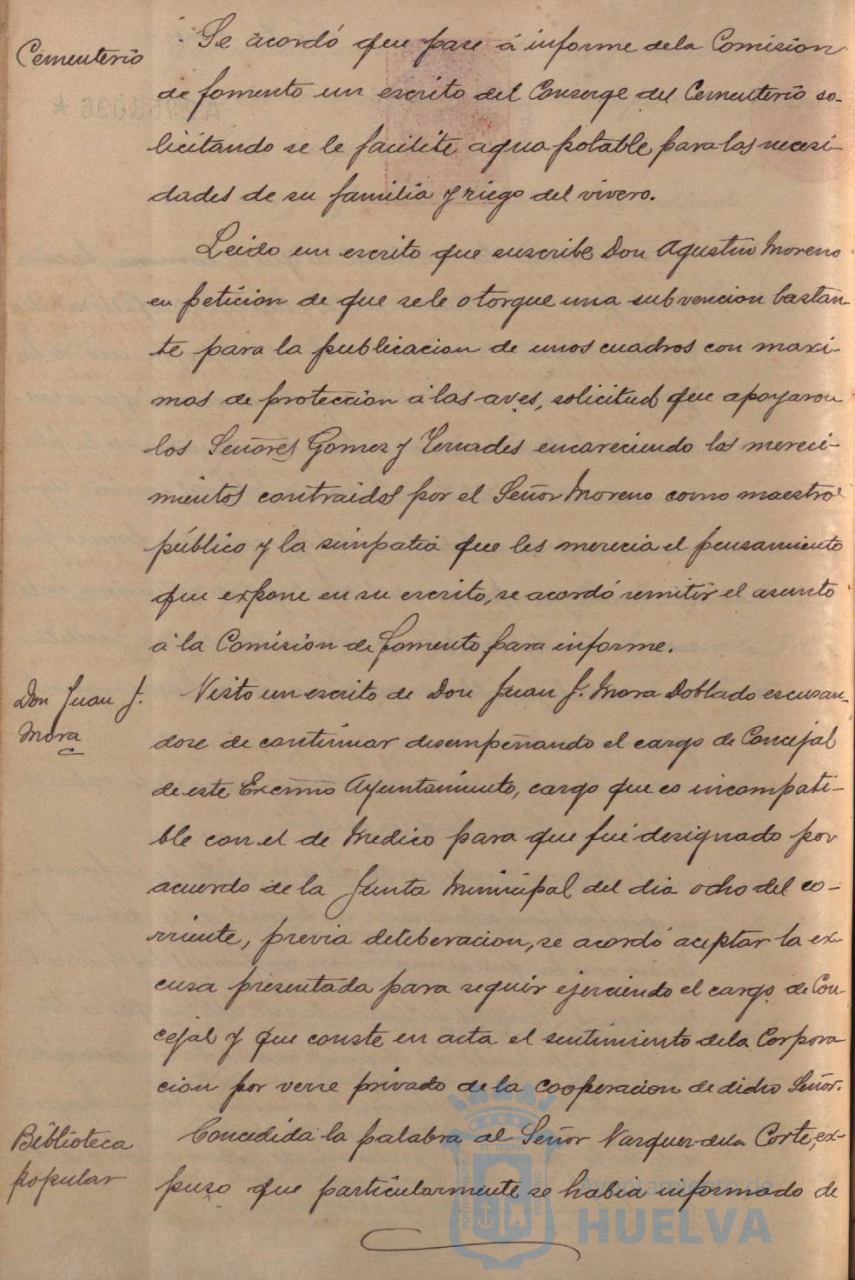 Cementerio
Se acordó que pase á informe dela Comision
de fomento un escrito del Conserge del Cementerio so-
licitando se le facilite agua potable, para las necesi-
dades de su familia y riego del vivero.
Leido un escrito que suscribe Don Agustin Moreno
en peticion de que sele otorgue una subvencion bastan-
te para la publicacion de unos cuadros con maxi-
mas de protección á las aves, solicitud que apoyaron
los Señores Gomez y Terrades encareciendo los mereci-
mientos contraidos por el Señor Moreno como maestro
público y la simpatia que les merecia el pensamiento
que expone en su escrito, se acordó remitir el asunto
á la Comision de fomento para informe.
Don Juan J.
Mora
Visto un escrito de Don Juan J. Mora Doblado escusan-
dose de continuar desempeñando el cargo de Concejal
de este Excmo Ayuntamiento, cargo que es incompati-
ble con el de Medico para que fué designado por
acuerdo de la Junta Municipal del dia ocho del co-
rriente, previa deliberacion, se acordó aceptar la ex-
cusa presentada para seguir ejerciendo el cargo de Con-
cejal y que conste en acta el sentimiento dela Corpora
cion por verse privado de la cooperacion de dicho Señor.
Biblioteca
popular
Concedida la palabra al Señor Vazquez dela Corte, ex-
puso que particularmente se habia informado de
Ayuntamiento de
HUELVA